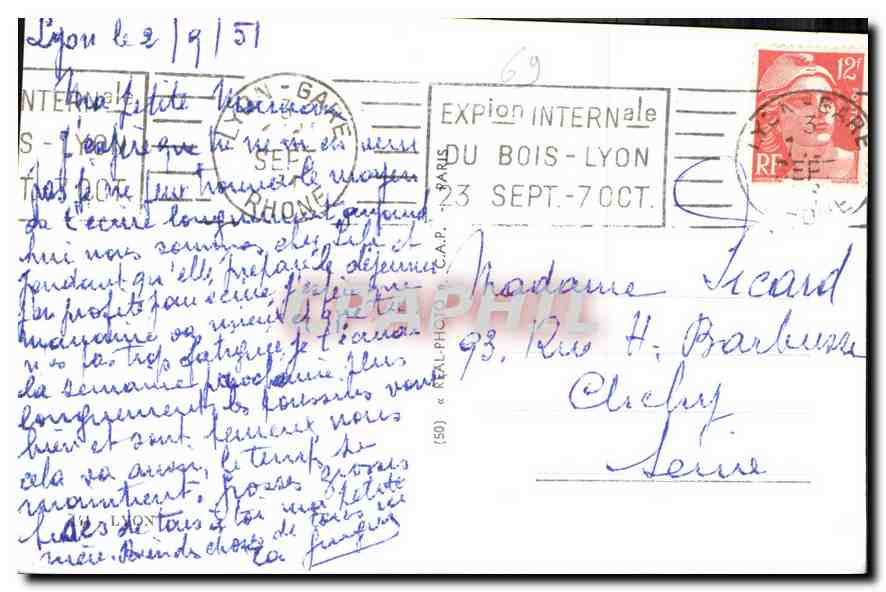 Lyon le 2/9/51
69
12f
RF
LYON-GARE
3
SEPT
RHONE
NTERNale
S-LYON
T.-7 OCT.
EXPion INTERNale
DU BOIS-LYON
23 SEPT.-7 OCT.
LYON-GARE
Ma petite Maman
J'espère que tu ne m'en veux
pas je ne peux trouver le moyen
de t'écrire longuement aujourd
hui nous sommes chez Lili et
pendant qu'elle prépare le déjeuner
j'en profite pour écrire j'espère que
mamaine va mieux et que tu
n'es pas trop fatiguée je t'écrirai
la semaine prochaine plus
longuement les poussins vont
bien et sont heureux nous
cela va aussi, le temps se
maintient. Grosses grosses
bises de tous à toi ma petite
mère. Bien des choses de tous ici
ta
LYON
(50) « REAL-PHOTO » C.A.P. - PARIS
Madame Sicard
93. Rue H. Barbusse
Clichy
Seine
CPAPHIL